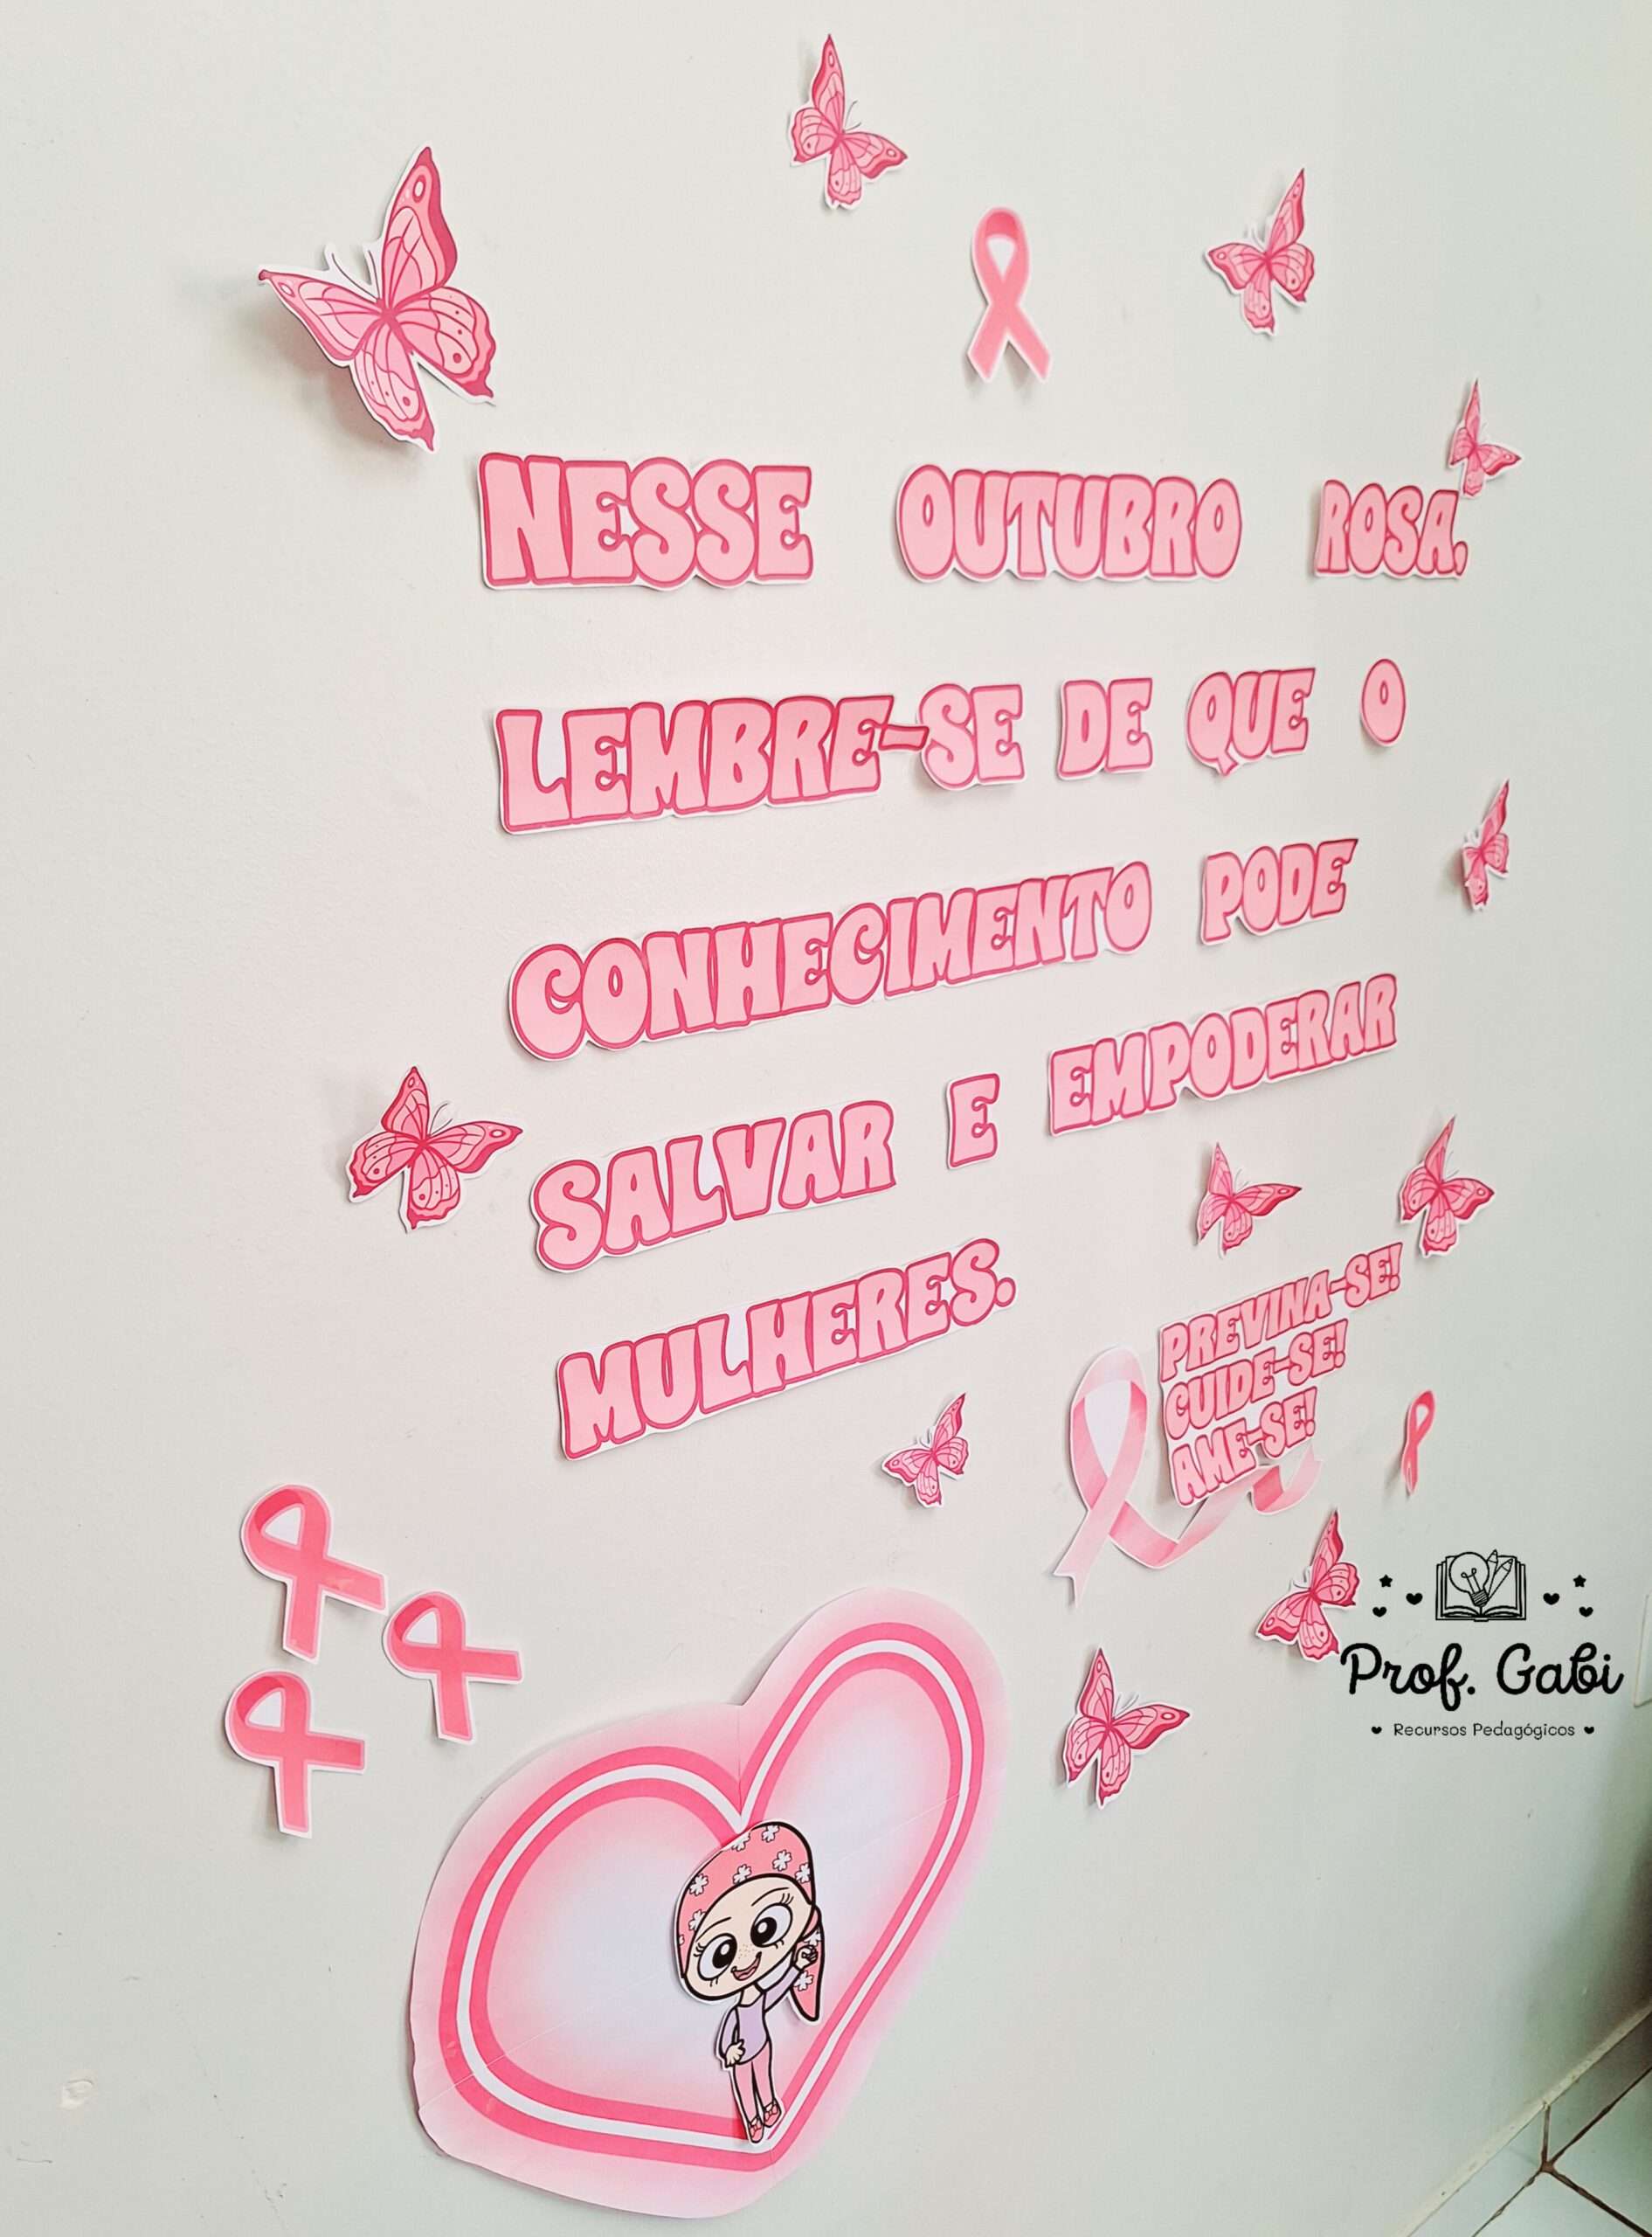 NESSE OUTUBRO ROSA,
LEMBRE-SE DE QUE O
CONHECIMENTO PODE
SALVAR E EMPODERAR
MULHERES.
PREVINA-SE!
CUIDE-SE!
AME-SE!
Prof. Gabi
Recursos Pedagógicos